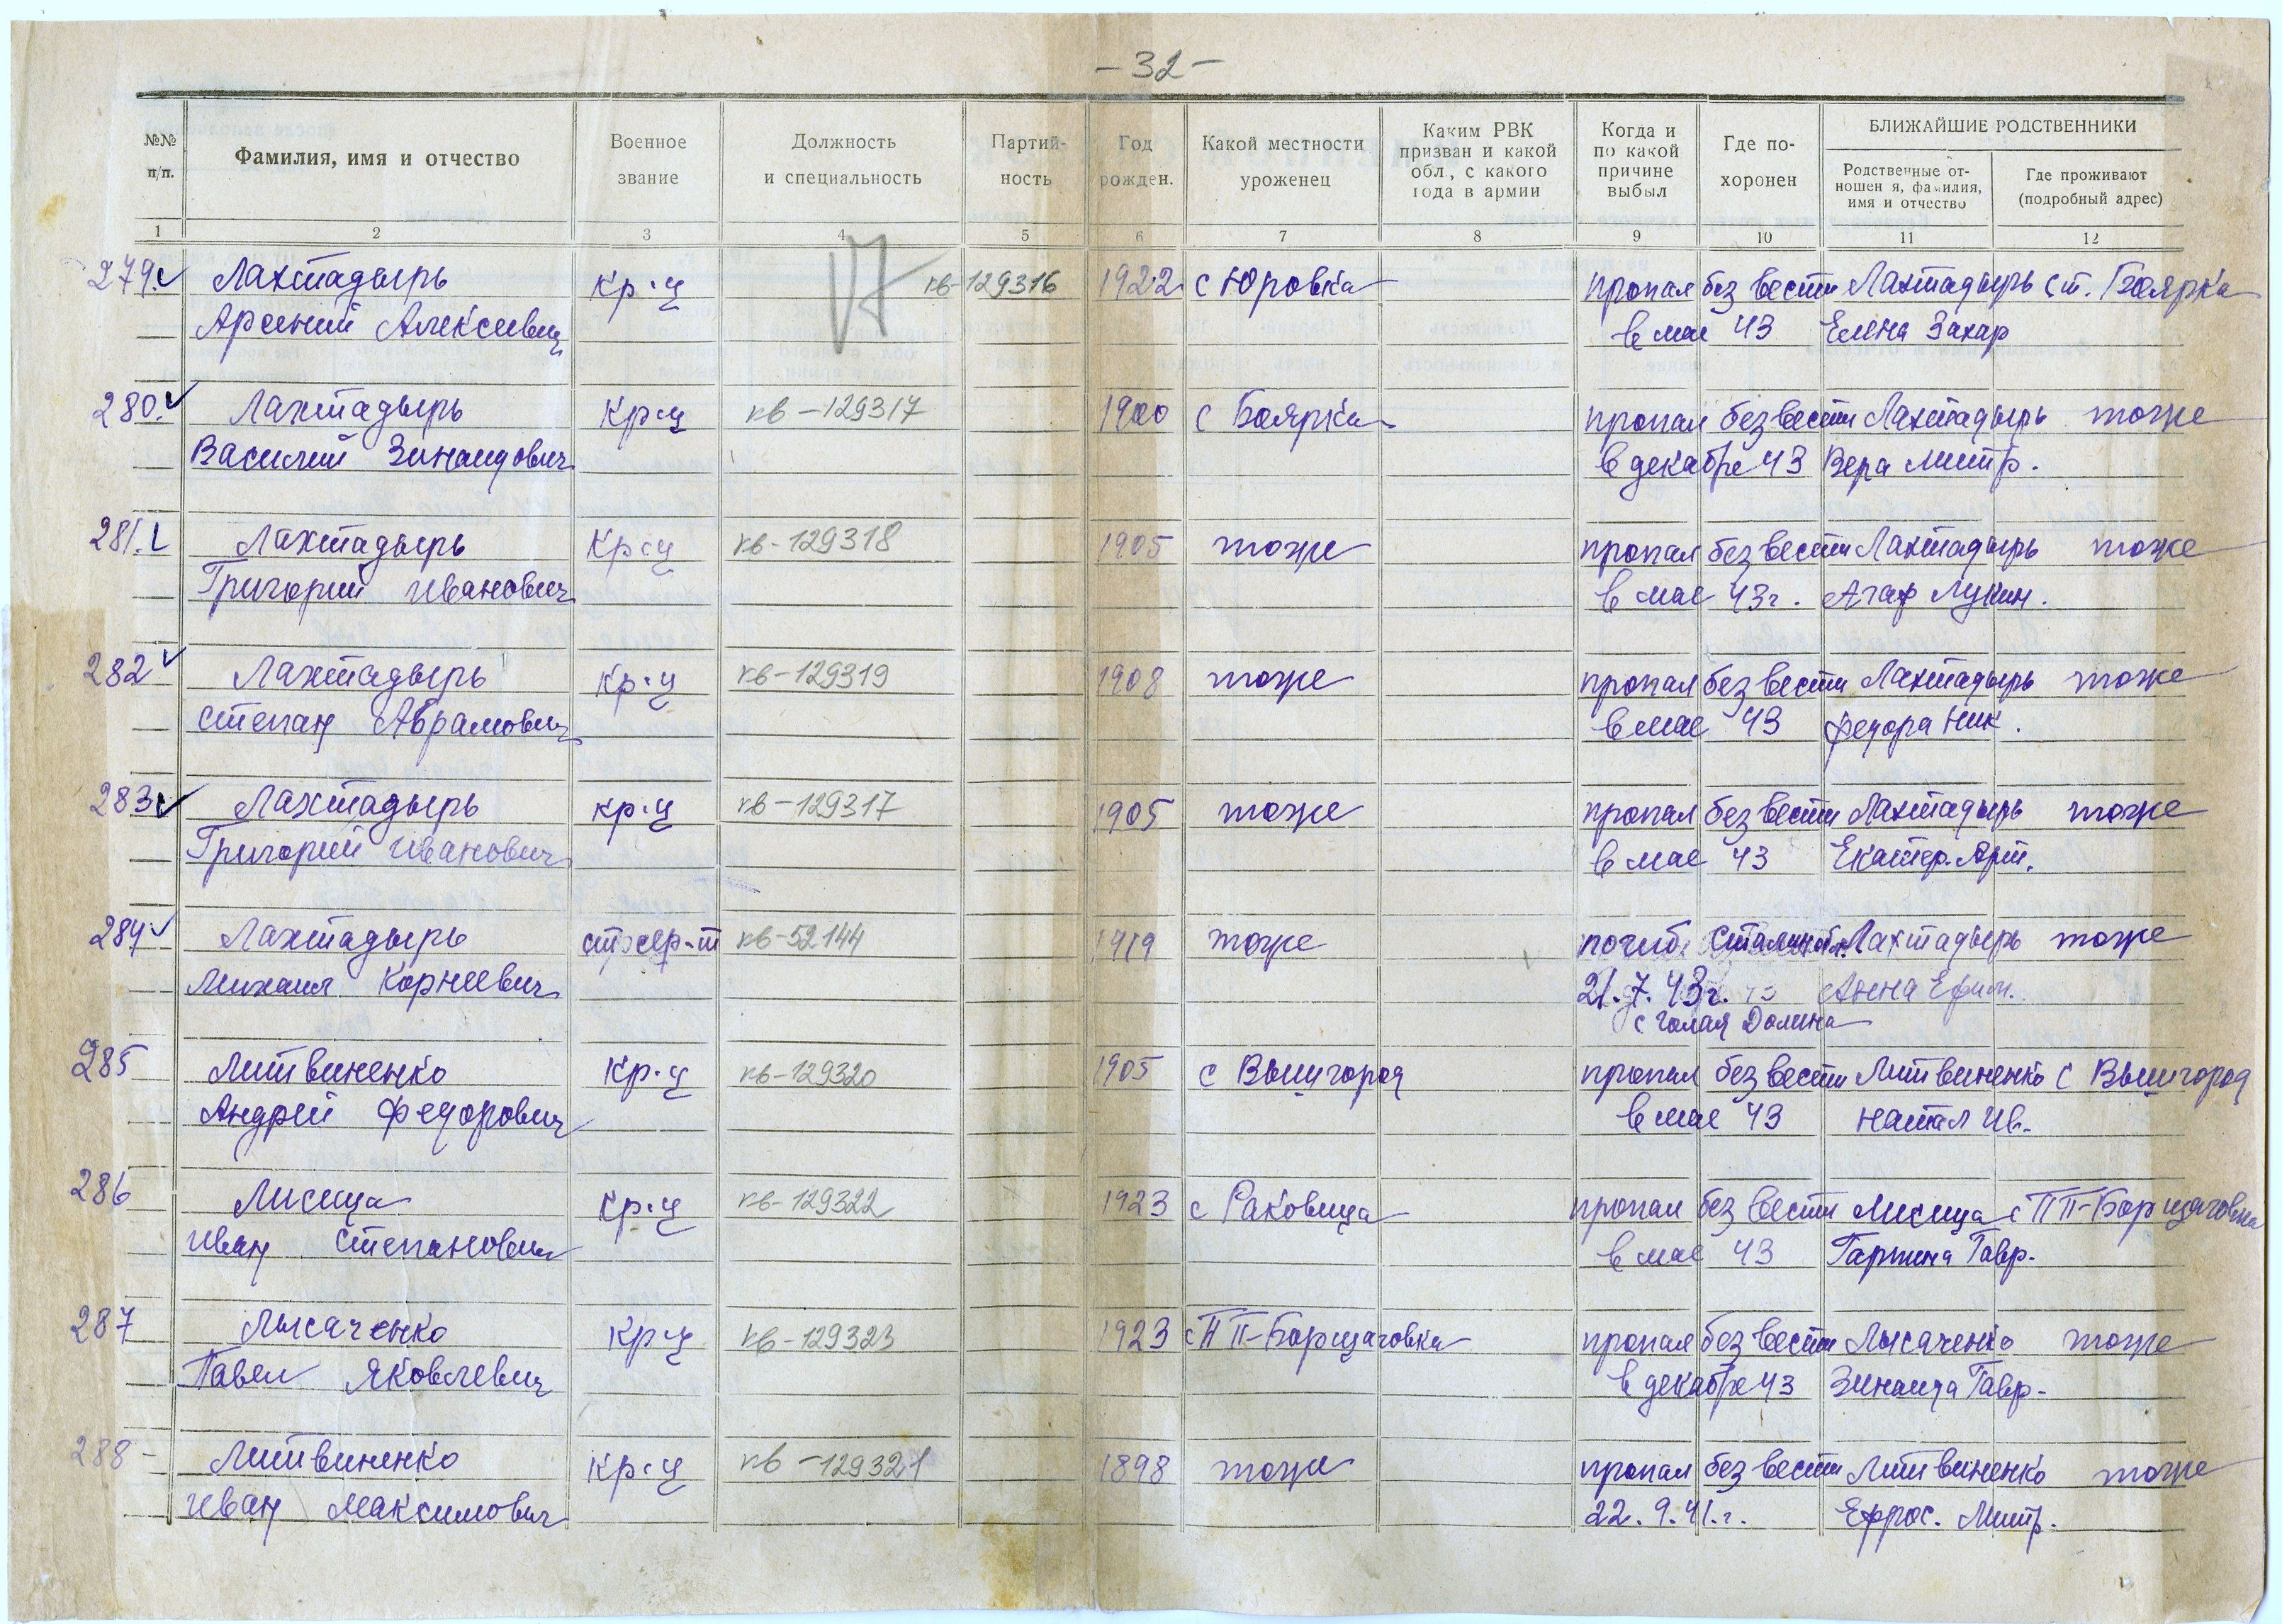 - 32 -
№№ п/п.
Фамилия, имя и отчество
Военное звание
Должность и специальность
Партий-ность
Год рожден.
Какой местности уроженец
Каким РВК призван и какой обл., с какого года в армии
Когда и по какой причине выбыл
Где по-хоронен
БЛИЖАЙШИЕ РОДСТВЕННИКИ
Родственные от-ношен я, фамилия, имя и отчество
Где проживают (подробный адрес)
1 2 3 4 5 6 7 8 9 10 11 12
279. Лахтадырь кр-ц кв-129316 1922 с Юровка пропал без вести Лахтадырь ст. Боярка
Арсений Алексеевич в мае 43 Елена Захар
280. Лахтадырь кр-ц кв-129317 1900 с Боярка пропал без вести Лахтадырь тоже
Василий Зинаидович в декабре 43 Вера Митр.
281. Лахтадырь кр-ц кв-129318 1905 тоже пропал без вести Лахтадырь тоже
Григорий Иванович в мае 43г. Агаф Лукин.
282 Лахтадырь кр-ц кв-129319 1908 тоже пропал без вести Лахтадырь тоже
Степан Абрамович в мае 43 Федора Ник.
283 Лахтадырь кр-ц кв-129317 1905 тоже пропал без вести Лахтадырь тоже
Григорий Иванович в мае 43 Екатер. Арт.
284 Лахтадырь ст сер-т кв-52144 1919 тоже погиб Сталин обл. Лахтадырь тоже
Михаил Корнеевич 21.7.43г. Анна Ефим.
с Голая Долина
285 Литвиненко кр-ц кв-129320 1905 с Вышгород пропал без вести Литвиненко с Вышгород
Андрей Федорович в мае 43 Натал Ив.
286 Лисица кр-ц кв-129322 1923 с Раковица пропал без вести Лисица с ПП-Борщаговка
Иван Степанович в мае 43 Гавр.
287 Лысаченко кр-ц кв-129323 1923 с ПП-Борщаговка пропал без вести Лысаченко тоже
Павел Яковлевич в декабре 43 Зинаида Гавр.
288 - Литвиненко кр-ц кв-129321 1898 тоже пропал без вести Литвиненко тоже
Иван Максимович 22.9.41.г. Ефрос. Митр.